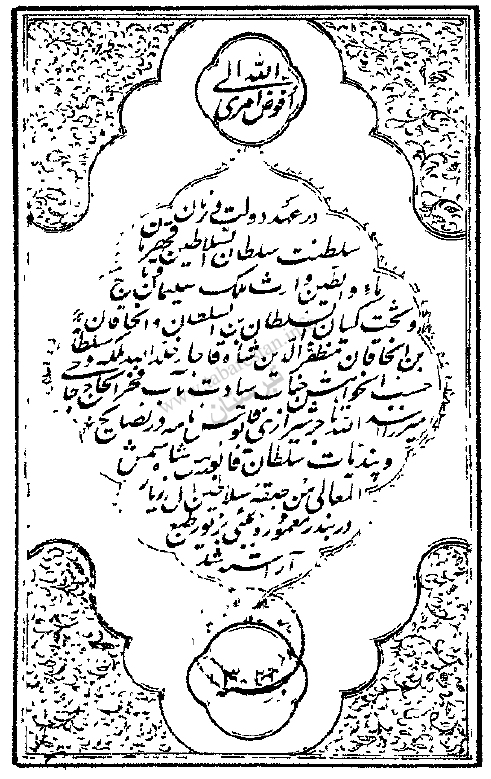 افوض امری
الی الله
در عهد دولت و زمان
سلطنت سلطان السلاطین قهرمان
ماء و الطین وارث ملک سلیمان و تاج
و تخت کیان السلطان بن السلطان و الخاقان
بن الخاقان مظفر الدین شاه قاجار خلد الله ملکه و
حسب الخواهش جناب سیادت مآب فخر الحاج حاجی
میرزا اسد الله تاجر شیرازی قابوس نامه در نصایح
و پندیات سلطان قابوس شمس
المعالی من طبقه سلاطین آل زیار
در بندر معموره بمبئی بزیور طبع
آراسته شد